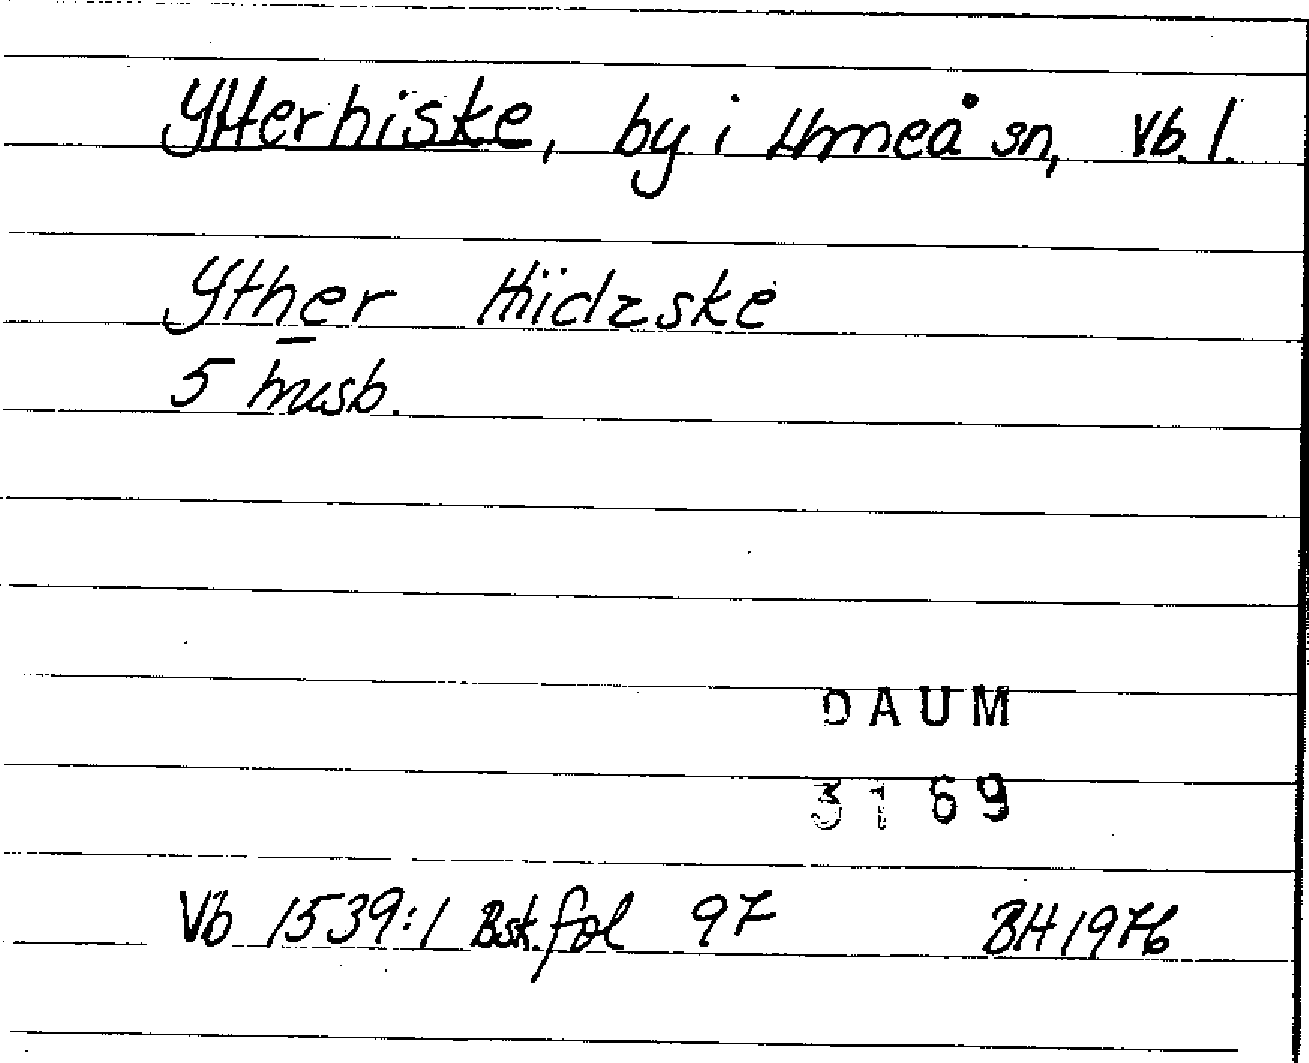 Ytterhiske, by i Umeå sn, Vb. l.
Yther Hiidzske
5 husb.
DAUM
3169
Vb 1539:1 Bsk. fol 97 BH 1976